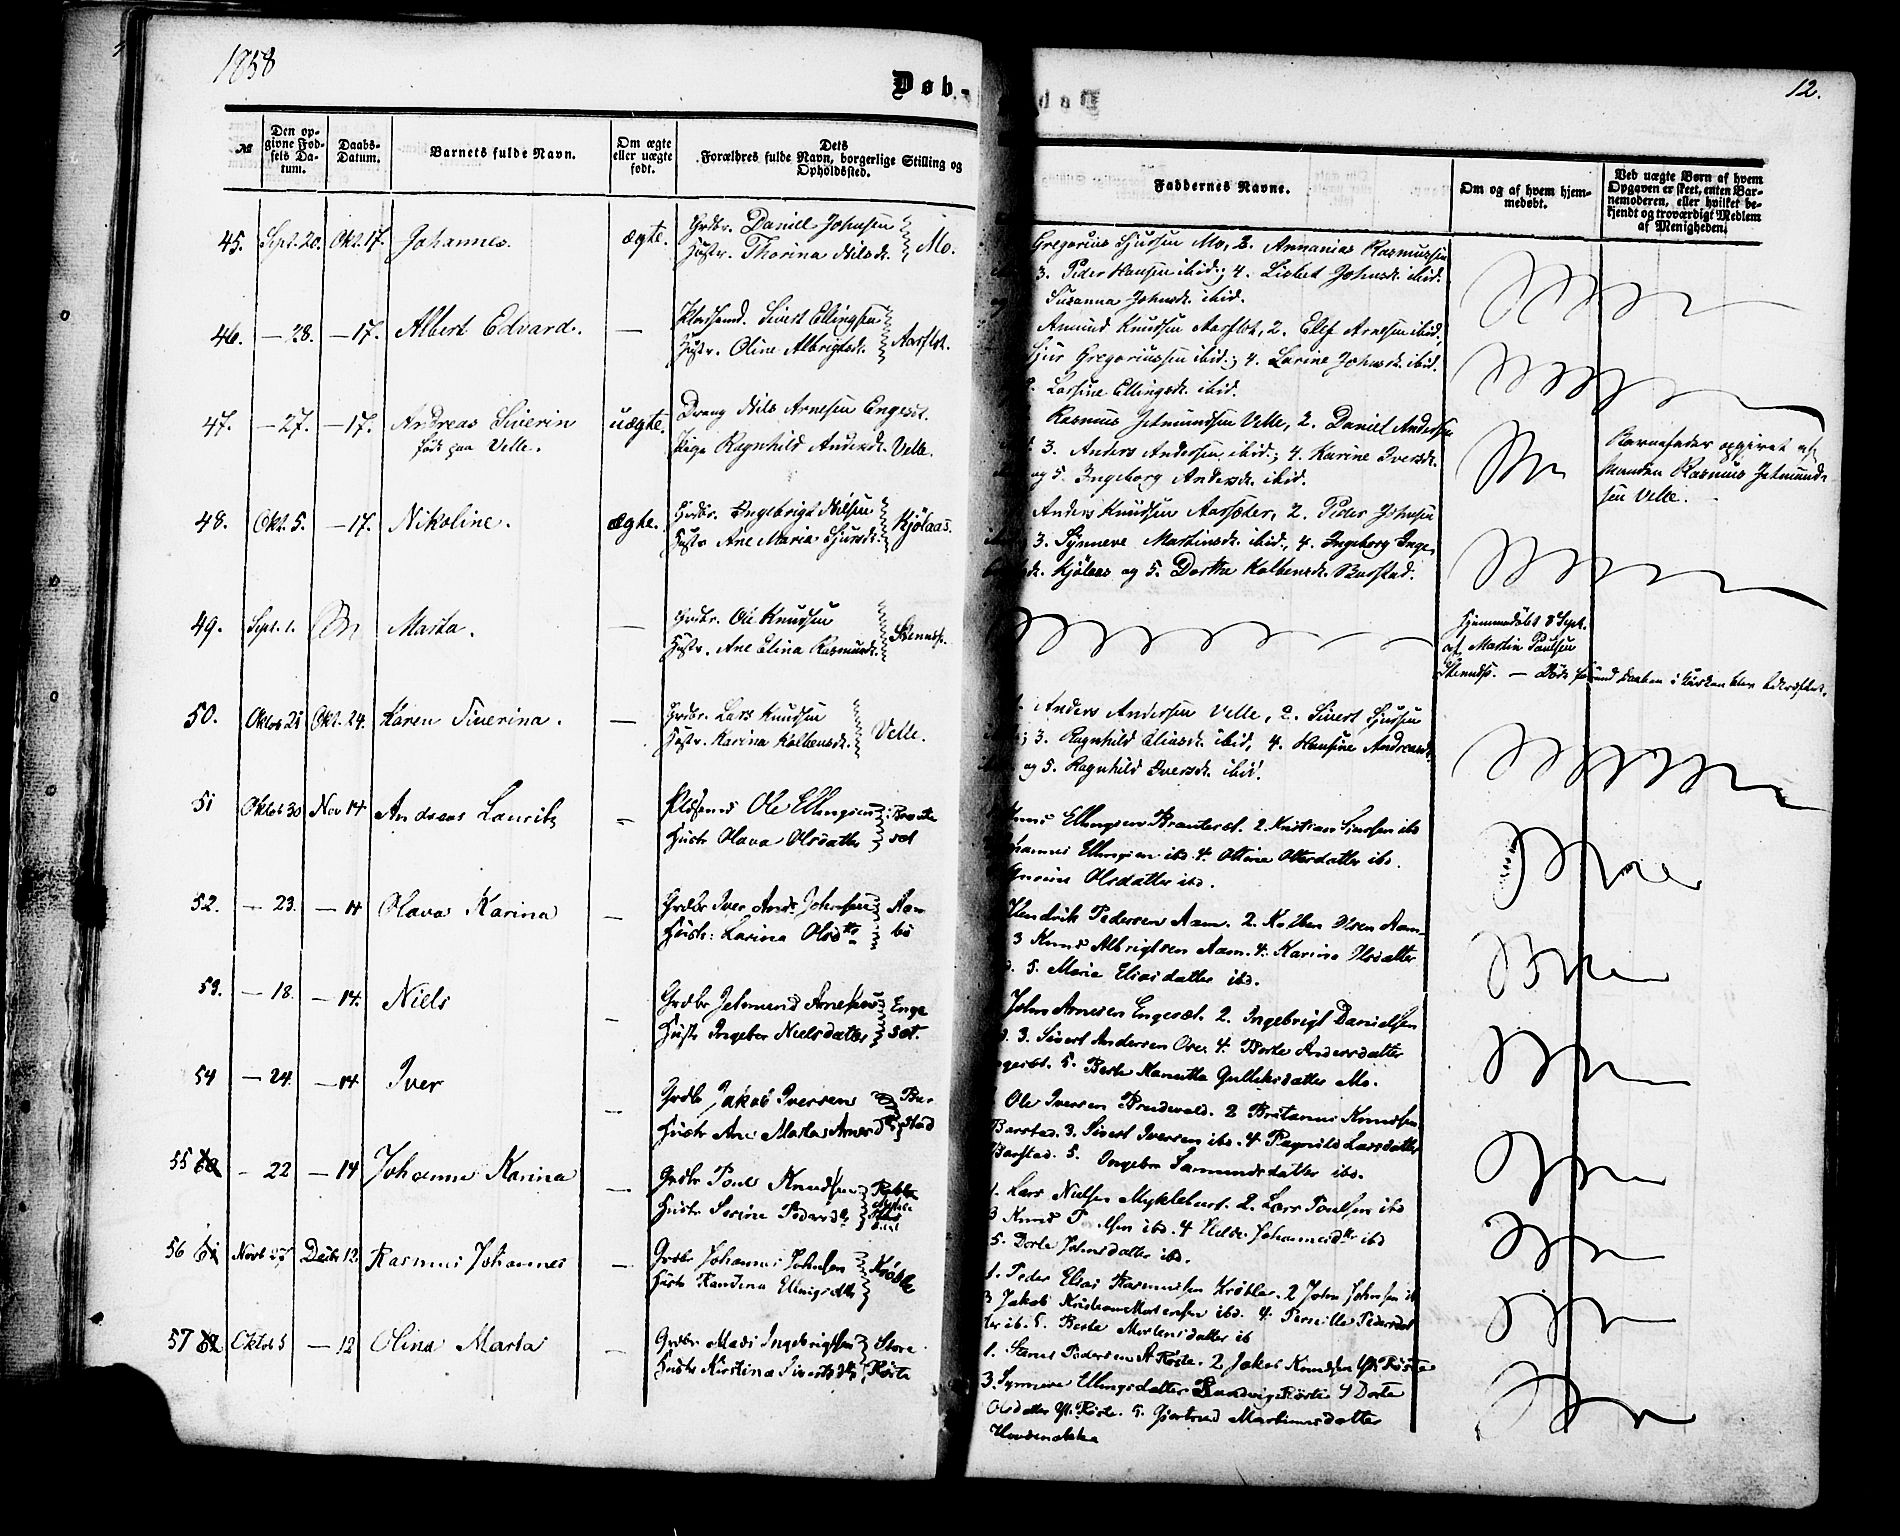 1858
Døb-
12.
№
Den op-
givne Fød-
sels Da-
tum.
Daabs-
Datum.
Barnets fulde Navn.
Om ægte
eller uægte
født.
Dets
Forældres fulde Navn, borgerlige Stilling og
Opholdssted.
Faddernes Navne.
Om og af hvem hjem-
medøbt.
Ved uægte Børn af hvem
Opgaven er skeet, enten Bar-
nemoderen, eller hvilket be-
kjendt og troværdigt Medlem
af Menigheden.
45. Sept. 20. Okt. 17. Johannes. ægte. Grdbr. Daniel Johnsen
Hustr. Thorina Nilsdr. Mo.
Gregorius Sjursen Mo, 2. Annanias Rasmussen
3. Peder Hansen ibid; 4. Lisbet Johnsdr. ibid.
Susanna Johnsdr. ibid.
46. — 28. — 17. Albert Edvard. — Pladsemd. Sivert Ellingsen
Hustr. Oline Albrigtsdr. Aarflot.
Amund Knudsen Aarflot, 2. Elef Arnesen ibid,
Sjur Gregoriussen ibid; 4. Larine Johnsdr. ibid.
Larsine Ellingsdr. ibid.
47. — 27. — 17. Andreas Siverin
født paa Velle.
uægte. Dreng Nils Arnesen Engeset.
Pige Ragnhild Andersdr. Velle.
Rasmus Jetmundsen Velle, 2. Daniel Andersen
3. Anders Andersen ibid; 4. Karine Iversdr.
og 5. Ingeborg Andersdr. ibid.
Barnefader opgivet af
Manden Rasmus Jetmund-
sen Velle.
48. Okt. 5. — 17. Nikoline. ægte. Grdbr. Ingebrigt Nilsen
Hustr. Ane Maria Sjursdr. Kjølaas.
Anders Knudsen Aarsæter, 2. Peder Johnsen
3. Synneve Martinsdr. ibid., 4. Ingeborg Inge-
Kjølaas og 5. Dorthe Kolbensdr. Barstad.
49. Sept. 1. Marta. — Grdbr. Ole Knudsen
Hustr. Ane Elina Rasmusdr.
Hjemmedøbt 8 Sept.
af Martin Paulsen
— Døde forend Daaben i Kirken blev bekræftet.
50. Oktob 21 Okt. 24. Karen Siverina. — Grdbr. Lars Knudsen
Hustr. Karina Kolbensdr. Velle.
Anders Andersen Velle, 2. Sivert Sjursen
3. Ragnhild Eliasdr. ibid, 4. Hansine Andreasdr.
og 5. Ragnhild Iversdr. ibid.
51 Oktob 30 Nov 14 Andreas Laurits Pldsemd Ole Ellingsen
Hustr Olava Olsdatter
Ellingsen Brauteset. 2. Kristian Sjursen ibd
Ellingsen ibd. 4. Oline Olsdatter ibd.
Olsdatter ibd.
52. — 23. — 14 Olava Karina — Grdbr Iver Andr. Johnsen
Hustr: Larina Olsdtr
Hendrik Pedersen Aam. 2. Kolben Olsen Aam-
3 Knud Albrigtsen Aam. 4. Karine Olsdatter
5. Marie Eliasdatter ibd.
53. — 18. — 14. Niels — Grdbr Jetmund Arnesen
Hustr Ingebor Nielsdatter Enge
set.
John Arnesen Engeset. 2. Ingebrigt Danielsen
3. Sivert Andersen Ose. 4. Berte Andersdatter
5. Berte Gulleksdatter Mo.
54 — 24. — 14 Iver — Grdbr Jakob Iversen
Hustr Ane Marta Arnesdtr Bar-
stad
Ole Iversen Brudevold. 2 Bretanus Knudsen
Barstad. 3. Sivert Iversen ibd. 4. Ragnild Larsdatter
Barstad. 5. Ingebor Samundsdatter ibd.
55 — 22 — 14 Johanne Karina — Grdbr Poul Knudsen
Hustr Serine Pedersdtr
1. Lars Nielsen Myklebust. 2. Lars Poulsen ibd
3 Knud ibd. 4 Johannesdtr ibd
5. Dorte Johnsdatter ibd.
56 Novb 27 Decbr 12. Rasmus Johannes — Grdbr Johannes Johnsen
Hustr Ellingsdtr Krøvle
1. Peder Elias Rasmussen Krøvle. 2 John Johnsen ib
3 Jakob Kristian Mortensen ibd. 4. Pernille Pedersdat-
ter ib. 5. Berte Mortensdatter ib
57 Oktob 5 — 12 Olina Marta — Grdbr Mads Ingebrigtsen
Hustr Kirstina Sivertsdtr Store-
Røste
1. Pedersen St Røste. 2 Jakob Knudsen Yt. Røste
3. Synneve Ellingsdatter Røste 4 Dorte
Olsdatter Yt. Røste. 5. Gjertrud Martinusdatter